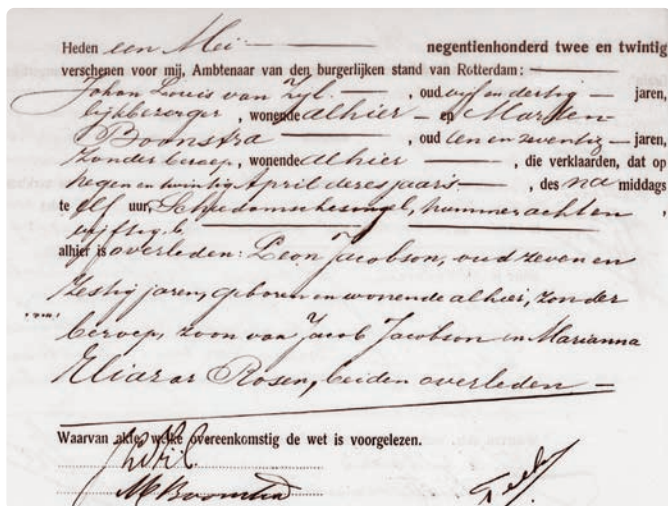 Heden een Mei negentienhonderd twee en twintig
verschenen voor mij, Ambtenaar van den burgerlijken stand van Rotterdam:
Johan Louis van Zijl, oud vijf en dertig jaren,
lijkbezorger, wonende alhier en Marten
Boonstra, oud een en zeventig jaren,
zonder beroep, wonende alhier, die verklaarden, dat op
negen en twintig April dezes jaars, des na middags
te elf uur, Schiedamschesingel, nummer acht en
vijftig b,
alhier is overleden: Leon Jacobson, oud zeven en
zestig jaren, geboren en wonende alhier, zonder
beroep, zoon van Jacob Jacobson en Marianna
Eliazar Rosen, beiden overleden.
Waarvan akte, welke overeenkomstig de wet is voorgelezen.
M Boonstra